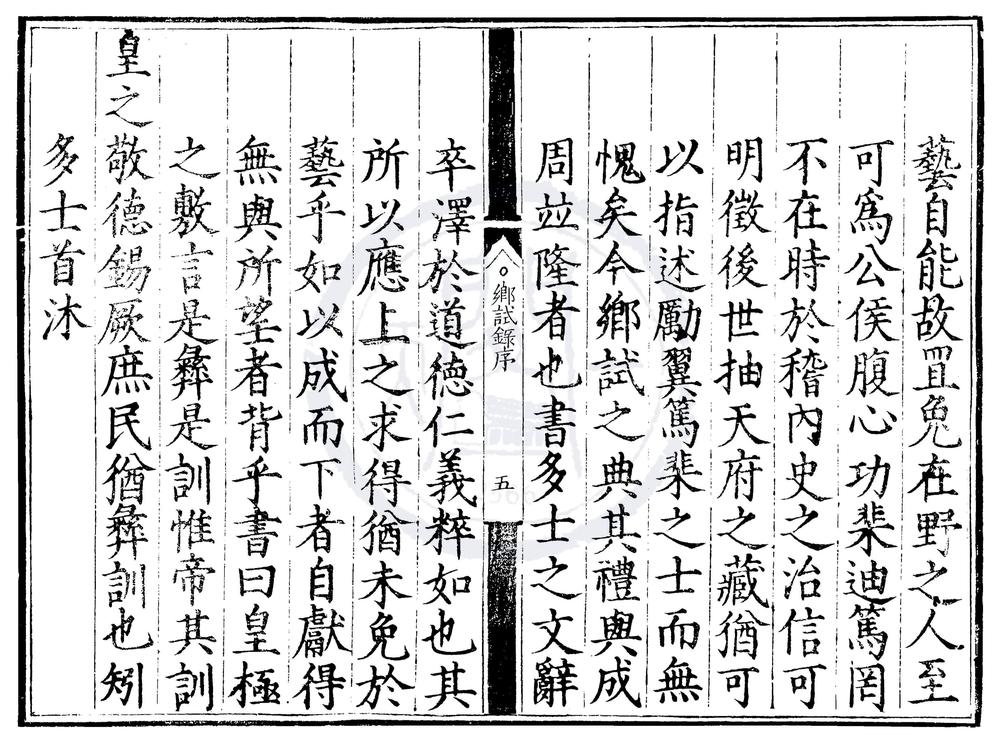 藝自能故罝兔在野之人至
可爲公侯腹心功棐迪篤罔
不在時於稽內史之治信可
明徵後世抽天府之藏猶可
以指述勵翼篤棐之士而無
愧矣今鄉試之典其禮與成
周竝隆者也書多士之文辭
鄉試錄序
五
卒澤於道德仁義粹如也其
所以應上之求得猶未免於
藝乎如以成而下者自獻得
無與所望者背乎書曰皇極
之敷言是彝是訓惟帝其訓
皇之敬德錫厥庶民猶彝訓也矧
多士首沐